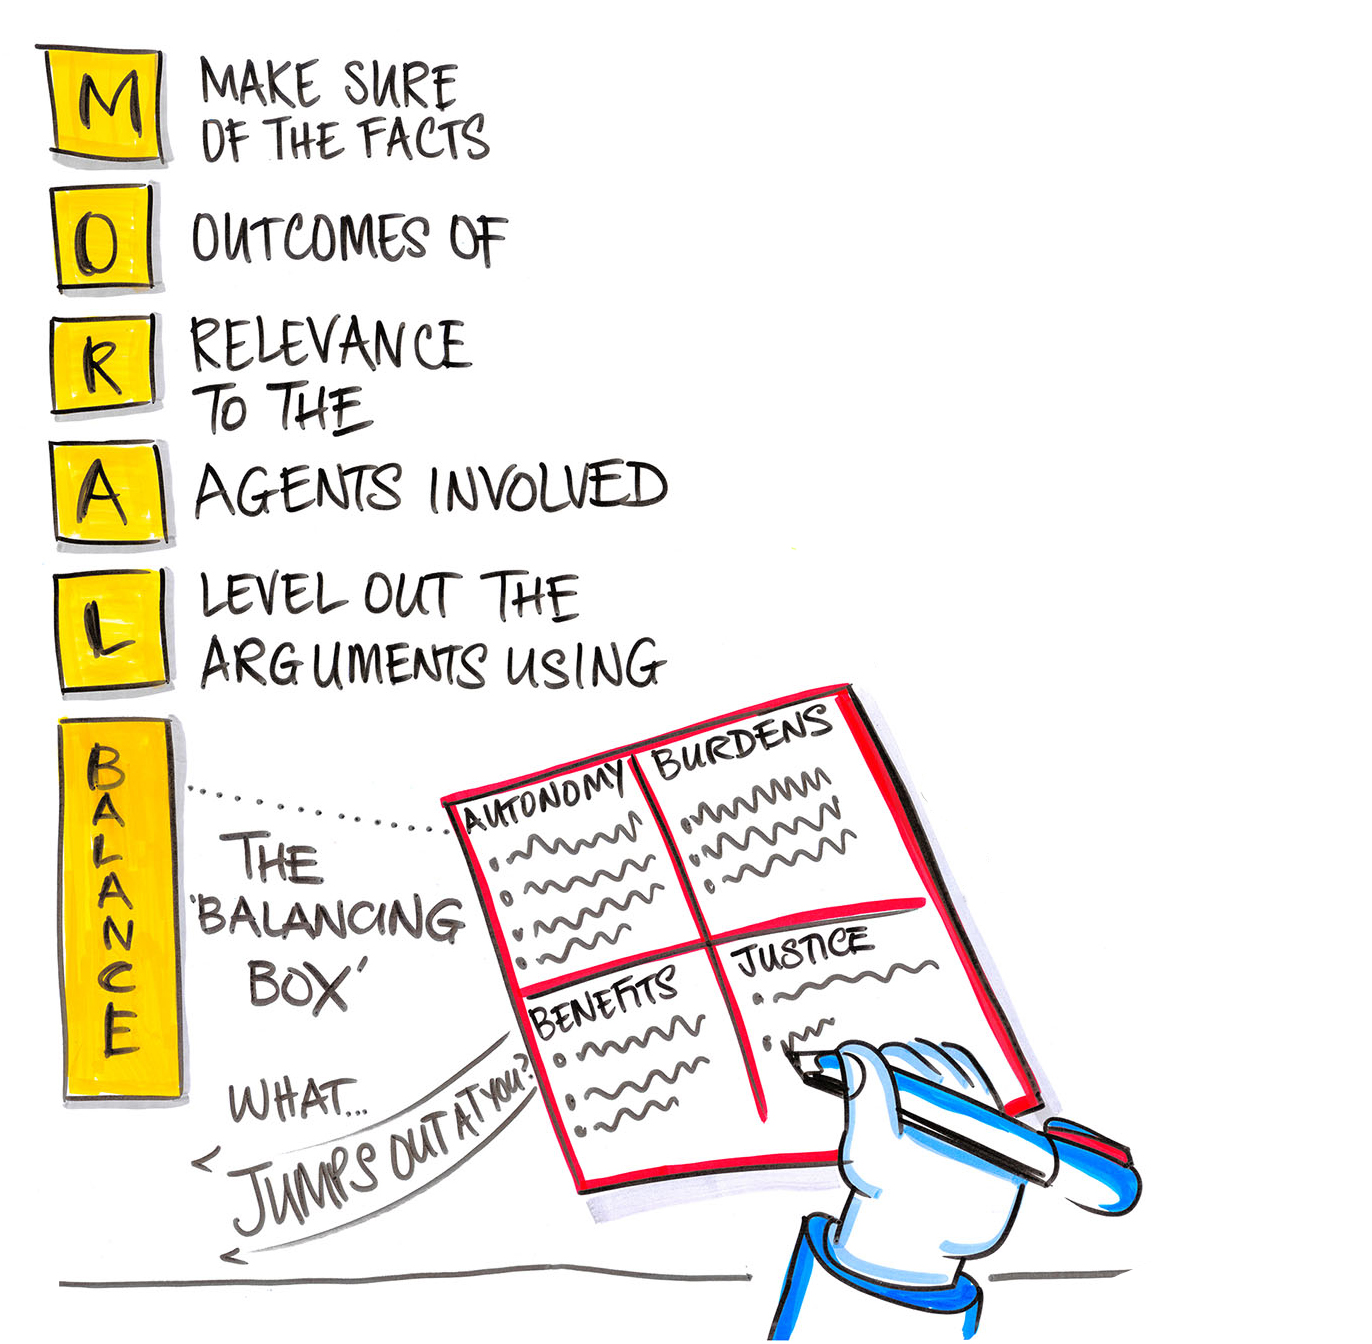 M MAKE SURE
OF THE FACTS
O OUTCOMES OF
R RELEVANCE
TO THE
A AGENTS INVOLVED
L LEVEL OUT THE
ARGUMENTS USING
BALANCE
THE
'BALANCING
BOX'
AUTONOMY
BURDENS
BENEFITS
JUSTICE
WHAT...
JUMPS OUT AT YOU?